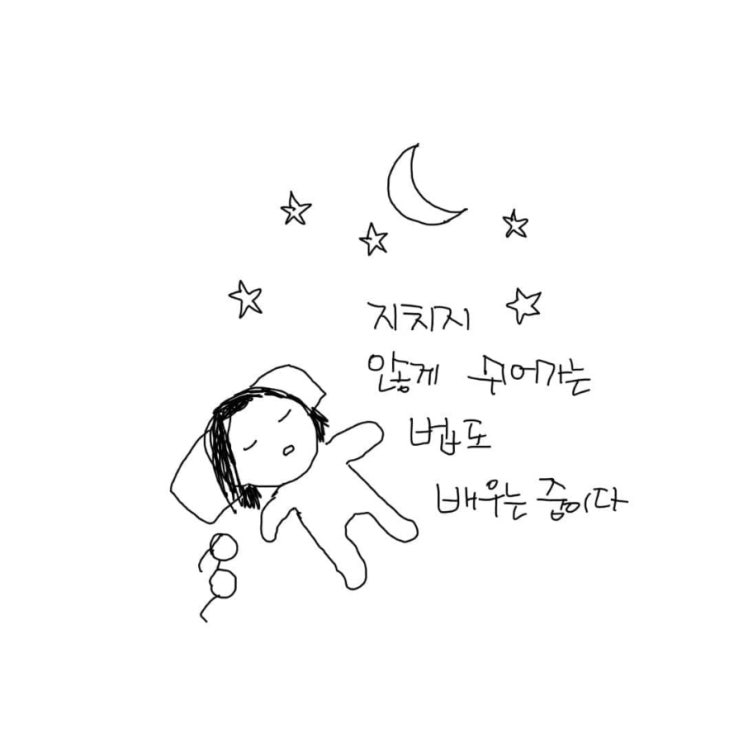 지치지
않게 쉬어가는
법도
배우는 중이다